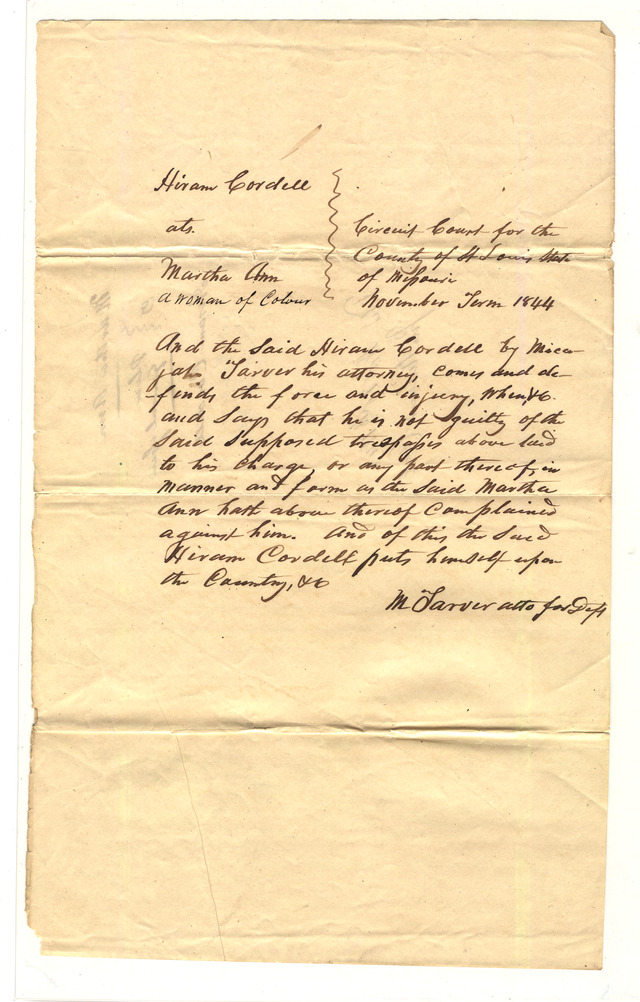 Hiram Cordell
ats.
Martha Ann
a woman of Colour
Circuit Court for the
County of St Louis State
of Missouri
November Term 1844
And the said Hiram Cordell by Mica-
jah Tarver his attorney, comes and de-
-fends the force and injury, when &c.
and says that he is not guilty of the
said supposed trespasses above laid
to his charge, or any part thereof, in
manner and form as the said Martha
Ann hath above thereof complained
against him. And of this the said
Hiram Cordell puts himself upon
the Country, &c
M Tarver atto for Deft